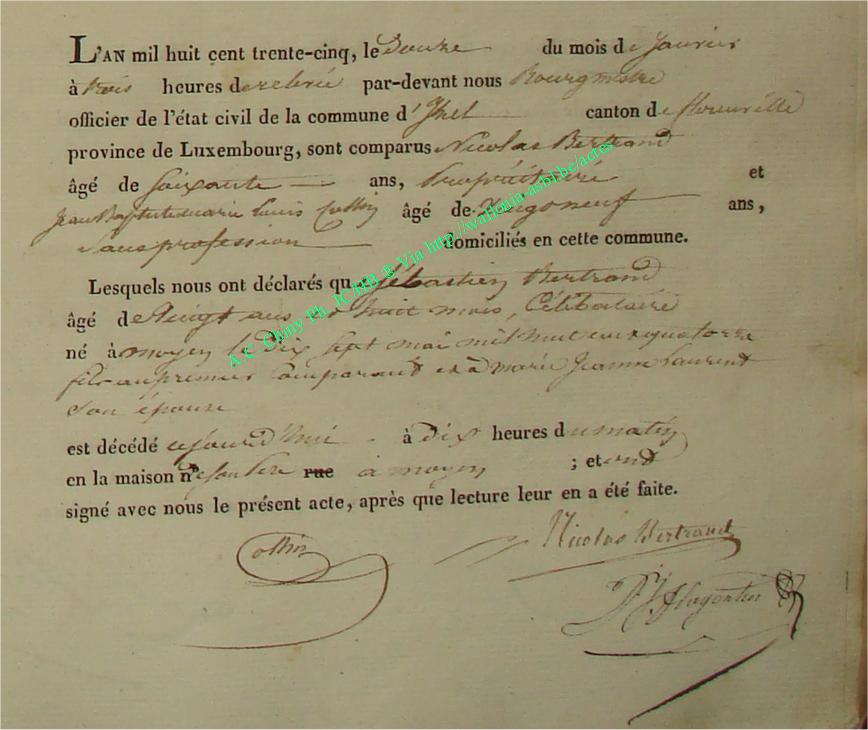 L'AN mil huit cent trente-cinq, le Douze du mois de Janvier
à trois heures de relevée par-devant nous Bourgmestre
officier de l'état civil de la commune d'Izel canton de florenville
province de Luxembourg, sont comparus Nicolas Bertrand
âgé de Soixante ans, Propriétaire et
Jean Baptiste marie Louis Collin âgé de Vingt neuf ans,
Sans profession domiciliés en cette commune.
Lesquels nous ont déclarés que Sébastien Bertrand
âgé de Vingt ans et huit mois, Célibataire
né à moyen le Dix Sept mai mil huit cent quatorze
fils au premier Comparant et à marie Jeanne Laurent
Son épouse
est décédé cejourd'hui à Dix heures du matin
en la maison n° de son Père rue à moyen ; et ont
signé avec nous le présent acte, après que lecture leur en a été faite.
Collin Nicolas Bertrand
A.C. Chiny Ph. JC HB & Via http://wallonia-asbl.be/actes